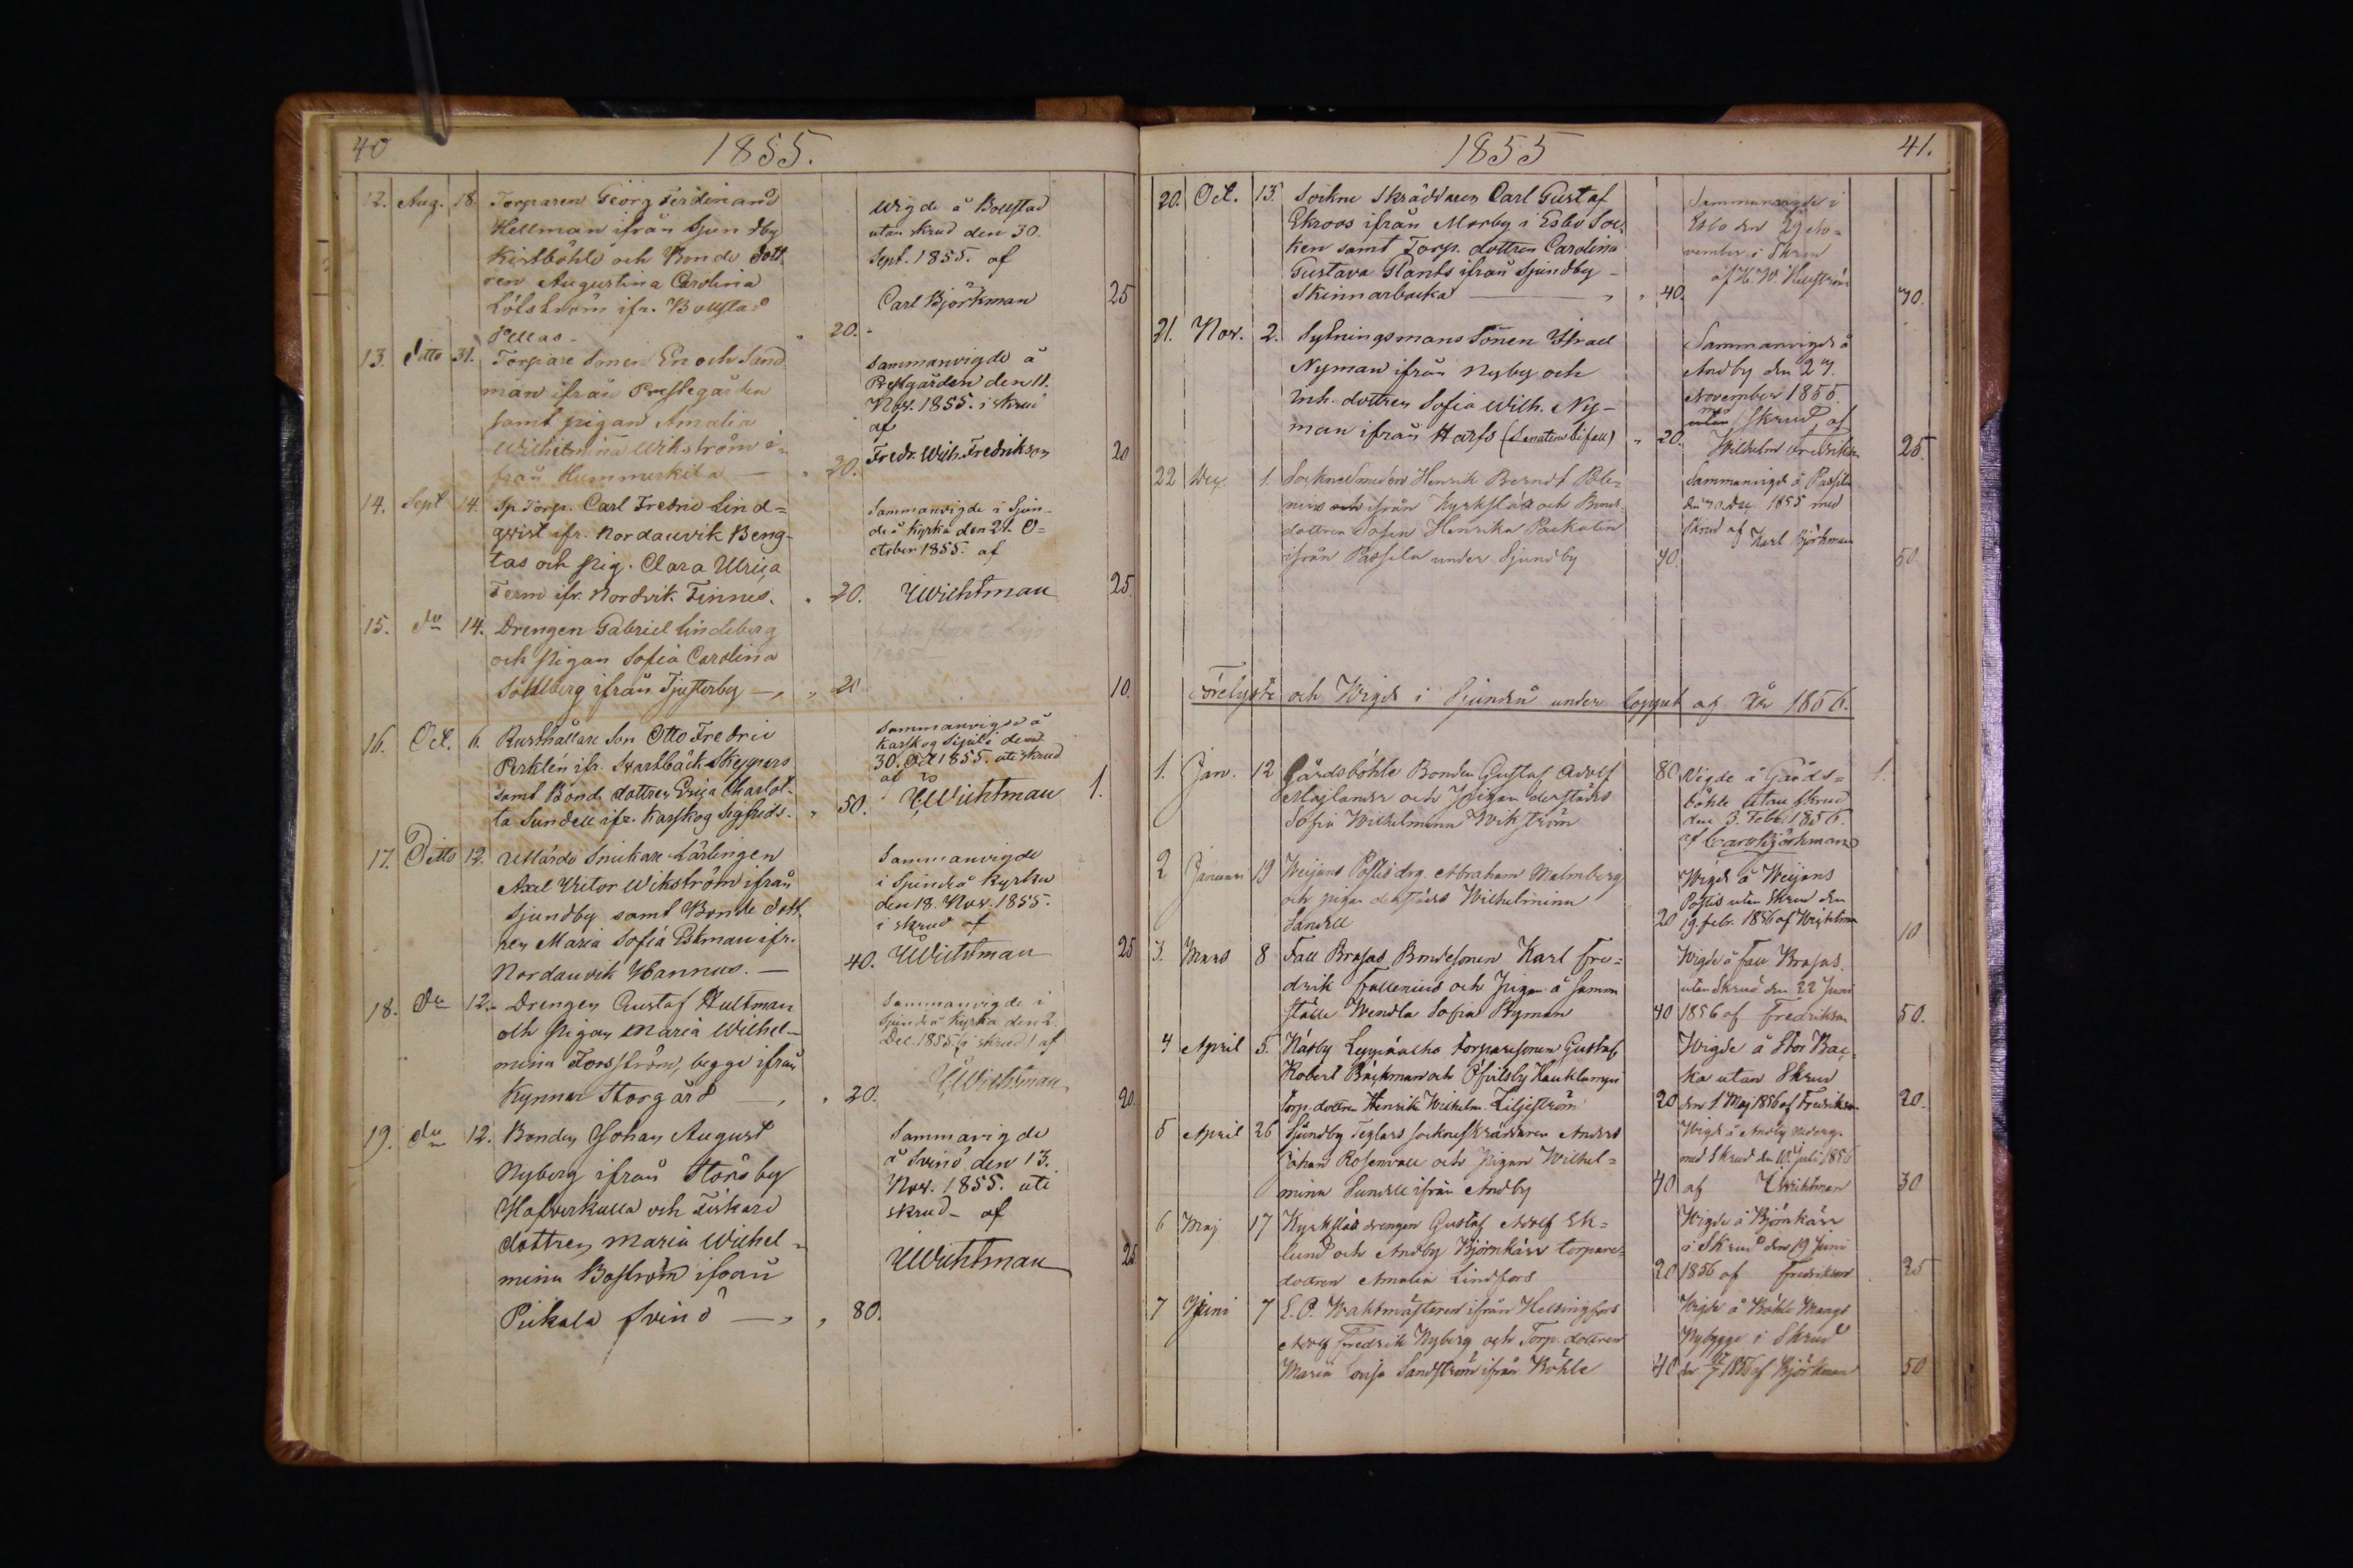 40
1855.
12. Aug. 18. Torparen Georg Ferdinand
Hellman ifrån Sjundby
Kistböhle och Bonde dott
ren Augustina Carolina
Löfström ifr. Bollstad
Pellas - 20.
Wigde å Bollstad
utan skrud den 30.
Sept. 1855. af
Carl Björkman 25
13. ditto 31. Torpare Sonen Enoch Sand
man ifrån Prestegården
samt pigan Amalia
Wilhelmina Wikström i-
från Hummerkila — 20.
Sammanvigde å
Prestgården den 11.
Nov. 1855. i skrud
af
Fredr. Wilh. Fredrikson 20
14. Sept 14. Sp Torp. Carl Fredric Lind=
qvist ifr. Nordanvik Beng-
tas och Pig. Clara Ulrica
Term ifr. Nordvik Finnes. 20.
Sammanvigde i Sjun-
deå Kyrka den 21. O=
ctober 1855. af
Wichtman 25
15. do 14. Drengen Gabriel Lindeberg
och Pigan Sofia Carolina
Sohlberg ifrån Tjusterby — 20. 10.
16. Oct. 6. Rusthållare Son Otto Fredric
Perklén ifr. Svartbäck Skeppars
samt Bonde dottren Erica Charlot-
ta Sundell ifr. Karskog Sigfrids. 50.
Sammanvigde å
Karskog Sipilä den
30. Oct 1855. uti skrud
af
Wichtman 1.
17. Ditto 12. Snickare Lärlingen
Axel Victor Wikström ifrån
Sjundby samt Bonde dott
ren Maria Sofia Ekman ifr.
Nordanvik Hannus. — 40.
Sammanvigde
i Sjundeå Kyrka
den 18. Nov. 1855.
i skrud af
Wichtman 25
18. do 12. Drengen Gustaf Hultman
och Pigan Maria Wilhel-
mina Forsström, begge ifrån
Kynnar Storgård — 20.
Sammanvigde i
Sjundeå Kyrka den 2.
Dec. 1855 (i skrud) af
Wichtman 20.
19. do 12. Bonden Johan August
Nyberg ifrån Störsby
Hafverkulla och Fiskare
dottren Maria Wilhel-
mina Boström ifrån
Pickala Svinö — 80.
Sammavigde
å Svinö den 13.
Nov. 1855. uti
skrud - af
Wichtman 25
1855
41.
20. Oct. 13. Sockne Skräddaren Carl Gustaf
Ekroos ifrån Morby i Esbo Soc-
ken samt Torp. dottren Carolina
Gustava Glants ifrån Sjundby -
Skinnarbacka — 40.
Sammanvigde i
Esbo den 29 No=
vember i Skrud
af H. W. Hellström 70.
21. Nov. 2. Sytningsmans Sonen Israel
Nyman ifrån Nyby och
Inh. dottren Sofia Wilh. Ny-
man ifrån Harfs (Senatens bifall) 20.
Sammanvigde å
Andby den 27.
November 1855.
med
utan Skrud, af
Wilhelm Fredrikson 25.
22 Dec. 1. Socknesmeden Henrik Berndt Pole-
nius och ifrån Kyrkslätt och Bonde
dottren Sofia Henrika Packalén
ifrån Passila under Sjundby 40.
Sammanvigde å Passila
den Dec 1855 med
Skrud af Karl Björkman 50.
Förelyste och Wigde i Sjundeå under loppet af År 1856.
1. Jan. 12 Gårdsböhle Bonden Gustaf Adolf
Majlander och Pigan derstädes
Sofia Wilhelmina Wikström 80
Vigde å Gårds=
böhle utan skrud
den 3. Febr. 1856.
af Carl Björkman 1.
2 Januari 19 Weijans Postis drg. Abraham Malmberg
och pigan derstädes Wilhelmina
Sandell 20
Wigde å Weijans
Postis utan Skrud den
19. febr. 1856 af Wichtman 10
3. Mars 8 Fall Brasas Bondesonen Karl Fre=
drik Fallenius och Pigan å samma
ställe Wendla Sofia Nyman 40
Wigde å Fall Brasas
utan Skrud den 22 Juni
1856 af Fredrikson 50.
4 April 5. Näsby Torparesonen Gustaf
Robert Bäckman och
Torp. dottren Henrika Wilhelm. Liljeström 20
Wigde å Stor Bac-
ka utan Skrud
den 1. Maj 1856 af Fredrikson 20.
5 April 26 Sjundby Teglars sockneskräddaren Anders
Johan Rosenvall och Pigan Wilhel=
mina Sundell ifrån Andby 40
Wigde å Andby
med Skrud den 10. Juli 1856
af Wichtman 30
6 Maj 17 Kyrkslätt drengen Gustaf Adolf Ek=
lund och Andby Björnkärr torpare=
dottren Amalia Lindfors 20
Wigde å Björnkärr
i Skrud den 19 Juni
1856 af Fredrikson 25
7 Juni 7 E. O. Waktmästaren ifrån Helsingfors
Adolf Fredrik Nyberg och Torp. dottren
Maria Lovisa Sandström ifrån Böhle 40
Wigde å Böhle Mangs
Nybygge i Skrud
den 1856 af Björkman 50